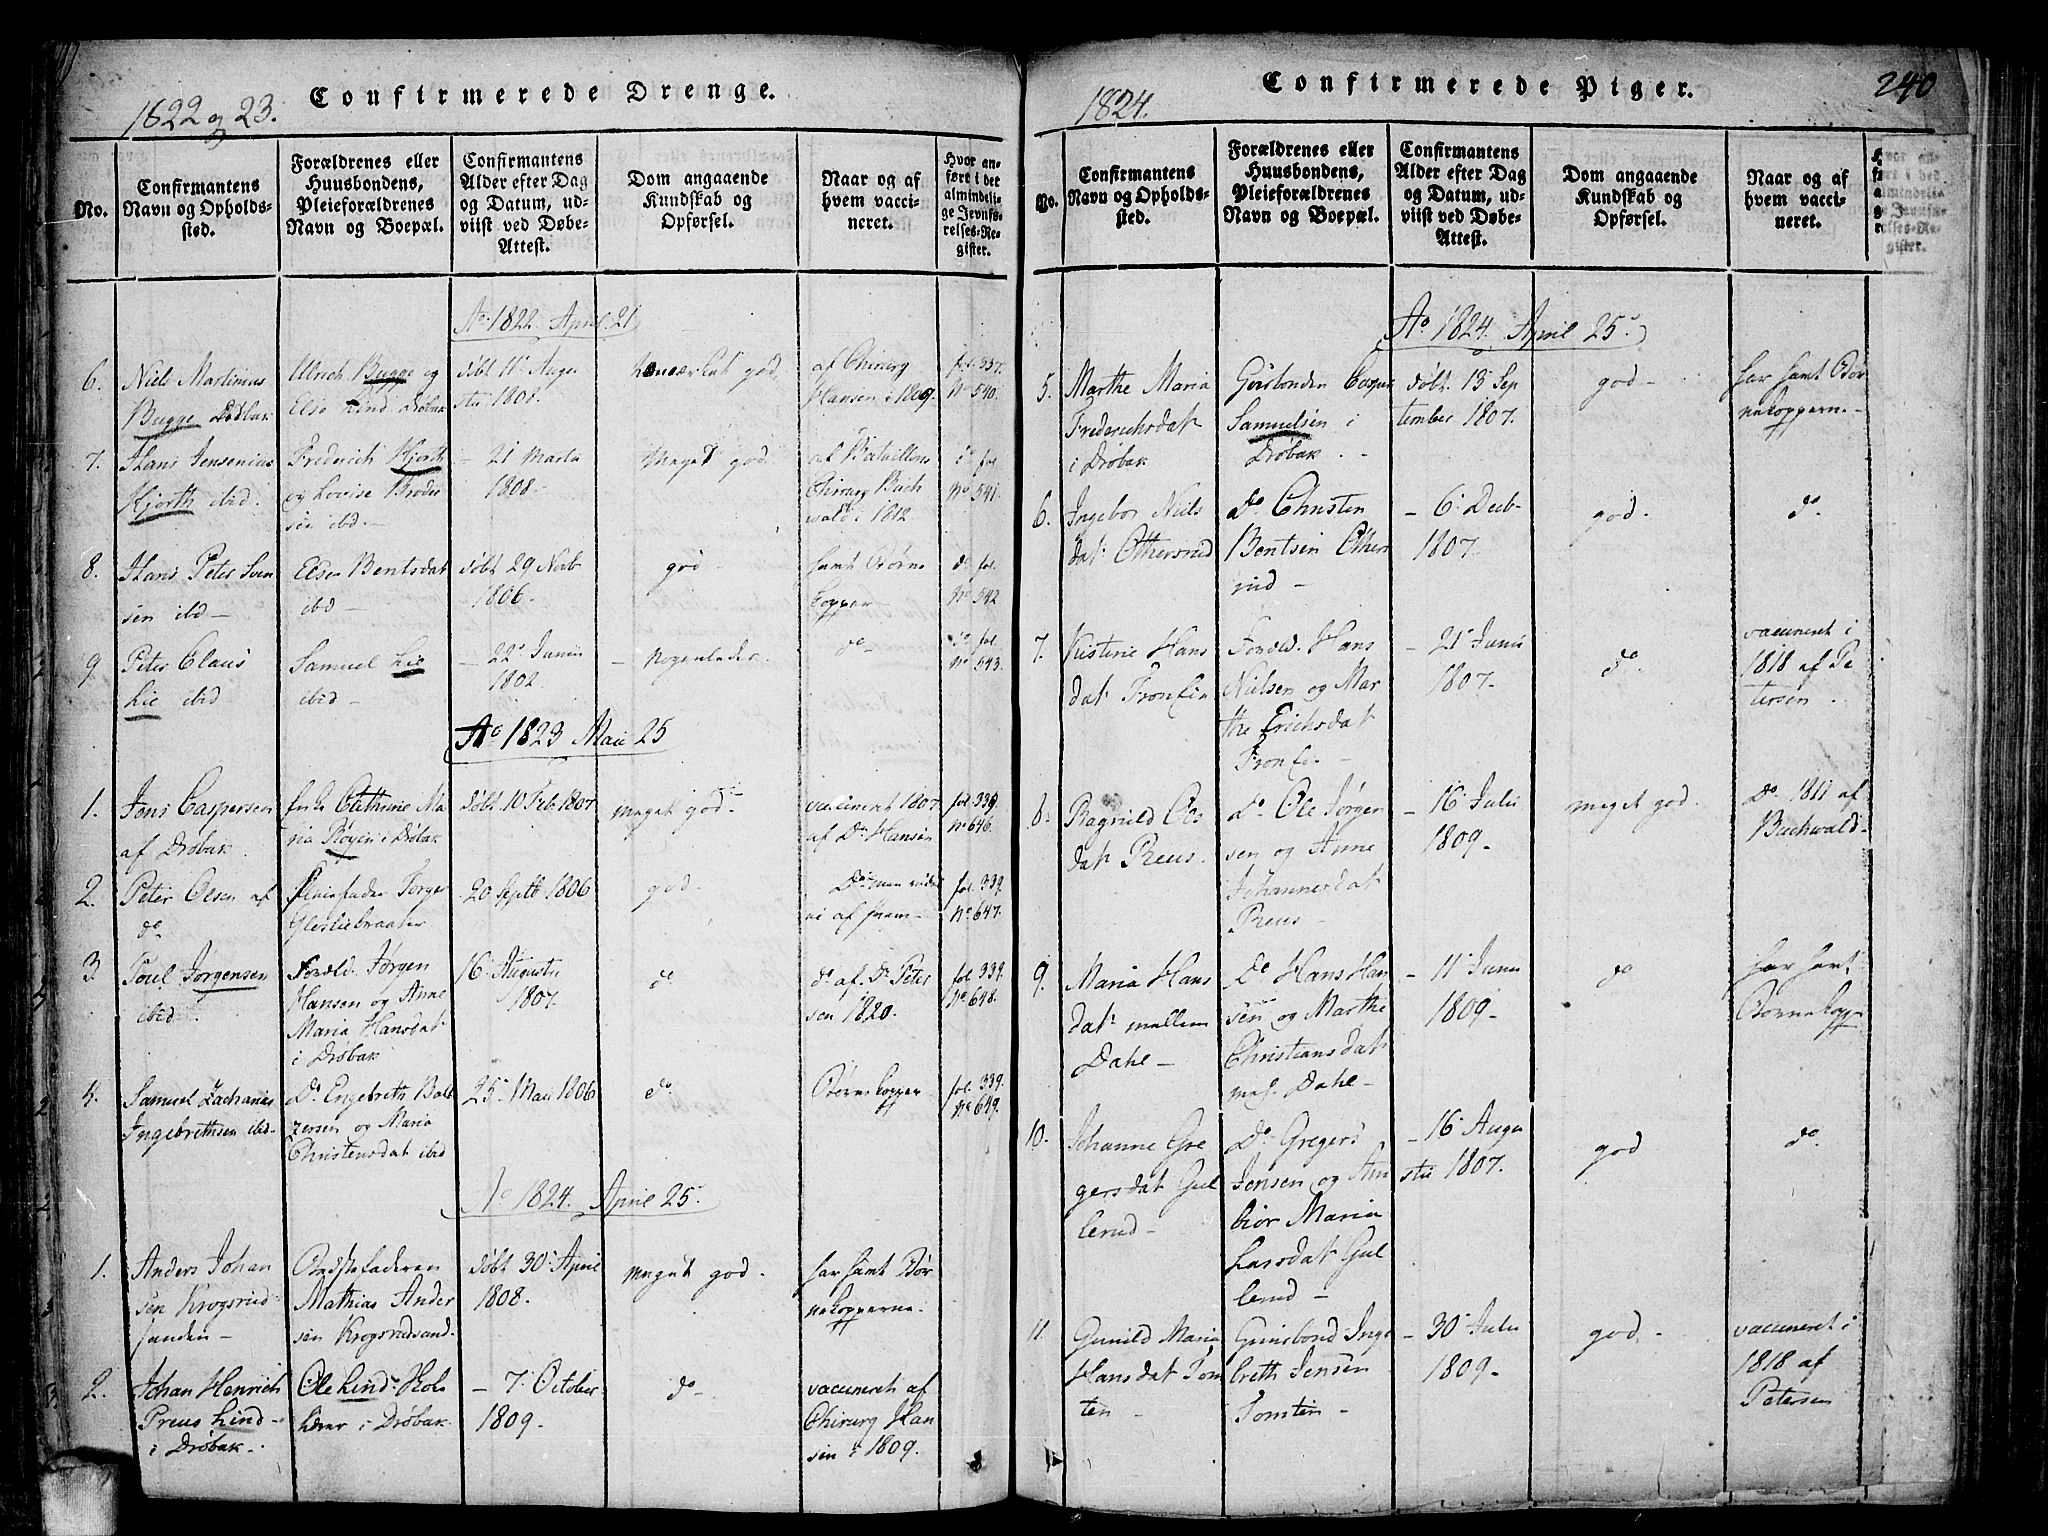 1822 og 23.
Confirmerede Drenge.
No.
Confirmantens
Navn og Opholds-
sted.
Forældrenes eller
Huusbondens,
Pleieforældrenes
Navn og Boepæl.
Confirmantens
Alder efter Dag
og Datum, ud-
viist ved Døbe-
Attest.
Dom angaaende
Kundskab og
Opførsel.
Naar og af
hvem vacci-
neret.
Hvor an-
ført i det
almindeli-
ge Jevnfø-
relses-Re-
gister.
Ao 1822 April 21
6.
Niels Martinius
Bugge Drøbak
Ulrich Bugge og
Else Lind Drøbak
døbt 11 Augu
sti 1808.
god
af Chirurg
Hansen i 1809.
fol. 337.
No 540.
7.
Hans Jensenius
Hjorth ibid.
Frederich Hjorth
og Lovise Broder
sen ibd.
- 21 Marts
1808.
Meget god
af Batallions
Chirurg Buch
wald i 1812
do fol.
No 541.
8.
Hans Peter Sven
sen ibd -
Else Bentsdat
ibd -
døbt 29 Novb
1806.
god -
hamt Børne
kopper -
do fol.
No 542
9
Peter Claus
Lie ibid
Samuel Lie
ibid -
- 22 Junii
1802.
- Nogenleder.
do -
do fol.
No 543.
Ao 1823 Maii 25
1.
Jens Caspersen
af Drøbak.
Cathrine Ma
ria Royen i Drøbak
døbt 10 Feb 1807
meget god -
vaccineret 1807
af Dr Hansen
fol. 339.
No 646.
2.
Peter Olsen af
do
Pleiefader Torger
20 Septb. 1806
god
fol. 339.
No 647.
3.
Poul Jørgensen
ibid.
Foræld. Jørgen
Hansen og Anne
Maria Hansdat
i Drøbak
16 Augusti
1807.
do
do af Dr Peter
sen 1820.
fol. 339.
No 648.
4.
Samuel Zacharias
Ingebrethsen ibid -
Do Engebreth Balt
zersen og Maria
Christensdat ibid
25 Maii 1806
do
Børnekopper
fol. 339.
No 649.
Ao 1824. April 25.
1.
Anders Johan
sen Krogsrud
sanden -
Mathias Ander
sen Krogsrudsand.
døbt 30 April
1808.
Meget god.
har hamt Bør
nekopperne.
2.
Johan Henrich
Preus Lind -
i Drøbak -
Ole Lind
i Drøbak
- 7 October
1809.
do -
vaccineret af
Chirurg Han
sen i 1809.
1824.
Confirmerede Piger.
240
No.
Confirmantens
Navn og Opholds-
sted.
Forældrenes eller
Huusbondens,
Pleieforældrenes
Navn og Boepæl.
Confirmantens
Alder efter Dag
og Datum, ud-
viist ved Døbe-
Attest.
Dom angaaende
Kundskab og
Opførsel.
Naar og af
hvem vacci-
neret.
Ao 1824. April 25.
5.
Marthe Maria
Frederichsdat
i Drøbak
Caspar
Samuelsen i
Drøbak.
døbt 13 Sep
tember 1807.
god -
har hamt Bør
nekopperne. -
6.
Ingebor Niels
dat Ottersrud
Do Christen
Bentsen Otters
rud -
- 6 Decb
1807.
god.
do
7.
Kisterie Hans
dat Fronsin
Foræld. Hans
Nielsen og Mar
the Erichsdat
- 21 Junii
1807.
do
vaccineret i
1818 af Pe
tersen.
8.
Ragnild Ols
dat Preus.
do Ole Jørgen
sen og Anne
Johannesdat
Preus -
- 16 Julii
1809.
meget god.
Do 1811 af
Buchwald
9.
Maria Hans
dat mellem
Dahl -
Do Hans Han
sen og Marthe
Christiansdat
mel. Dahl -
- 11 Junii
1809 -
do
har hamt
Børnekopp
10.
Johanne Gre
gersdat Gul
lerud -
Do Gregers
Jensen og An
bior Maria
Larsdat Gul
lerud -
- 16 Augu
sti 1807.
god
do
11.
Gunild Maria
Hansdat Tom
ten -
Inge
breth Jensen
Tomten -
- 30 Julii
1809 -
god -
vaccineret i
1818 af
Petersen